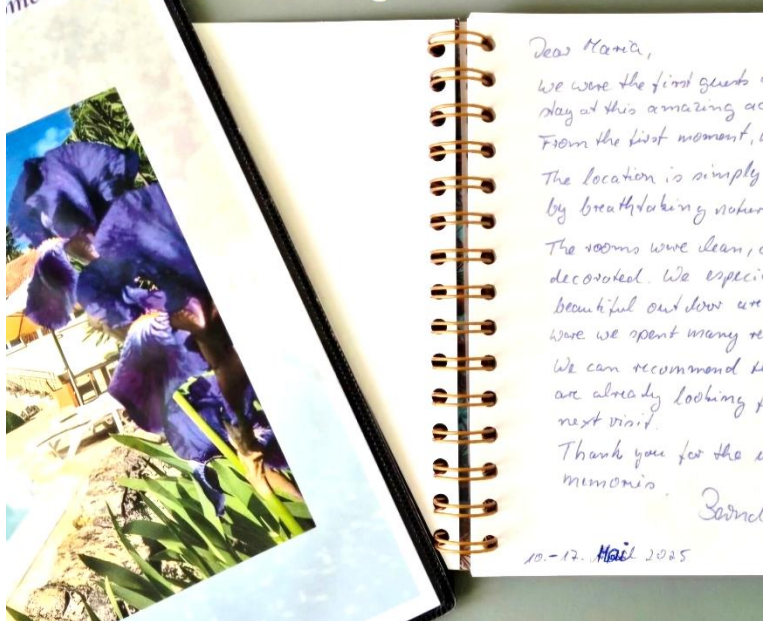 Dear Maria,
we were the first guests
stay at this amazing
From the first moment,
The location is simply
by breathtaking natur
The rooms were clean,
decorated. We especi
beautiful outdoor are
were we spent many re
We can recommend
are already looking
next visit.
Thank you for the
memoris
Bernd
10.-17. Mai 2025